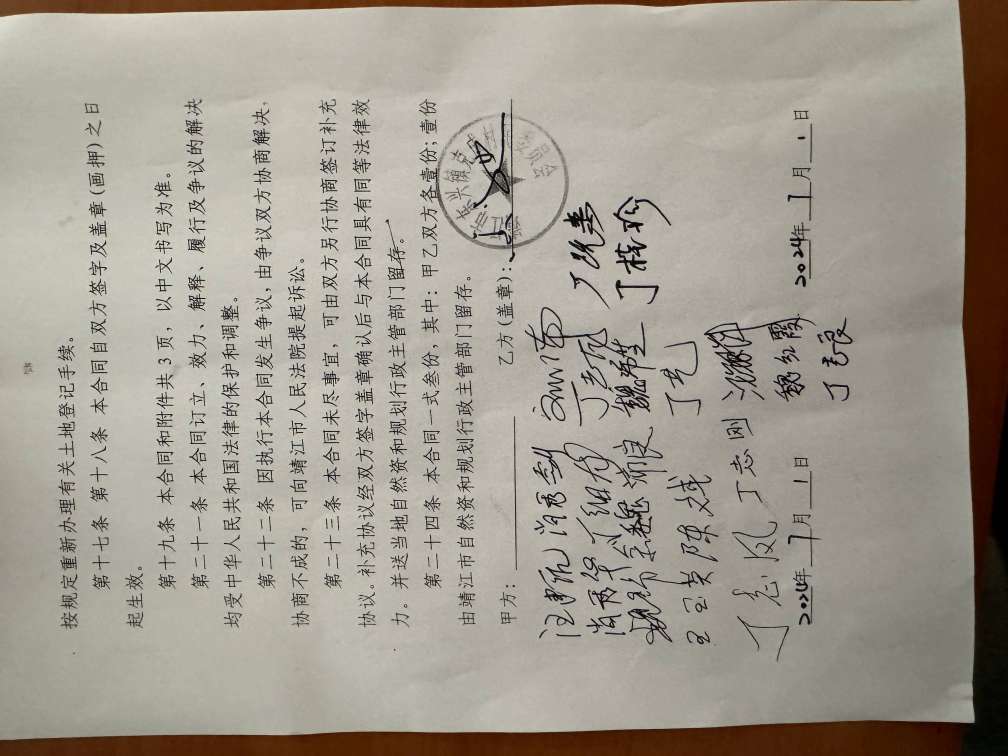 按规定重新办理有关土地登记手续。
第十七条 第十八条 本合同自双方签字及盖章(画押)之日
起生效。
第十九条 本合同和附件共3页，以中文书写为准。
第二十一条 本合同订立、效力、解释、履行及争议的解决
均受中华人民共和国法律的保护和调整。
第二十二条 因执行本合同发生争议，由争议双方协商解决，
协商不成的，可向靖江市人民法院提起诉讼。
第二十三条 本合同未尽事宜，可由双方另行协商签订补充
协议。补充协议经双方签字盖章确认后与本合同具有同等法律效
力。并送当地自然资和规划行政主管部门留存。
第二十四条 本合同一式叁份，其中：甲乙双方各壹份；壹份
由靖江市自然资和规划行政主管部门留存。
甲方： 乙方(盖章)：
丁桂珍
丁光
王宝英 陈斌
丁志凤 丁志刚
丁志良
2024年1月1日 2024年1月1日